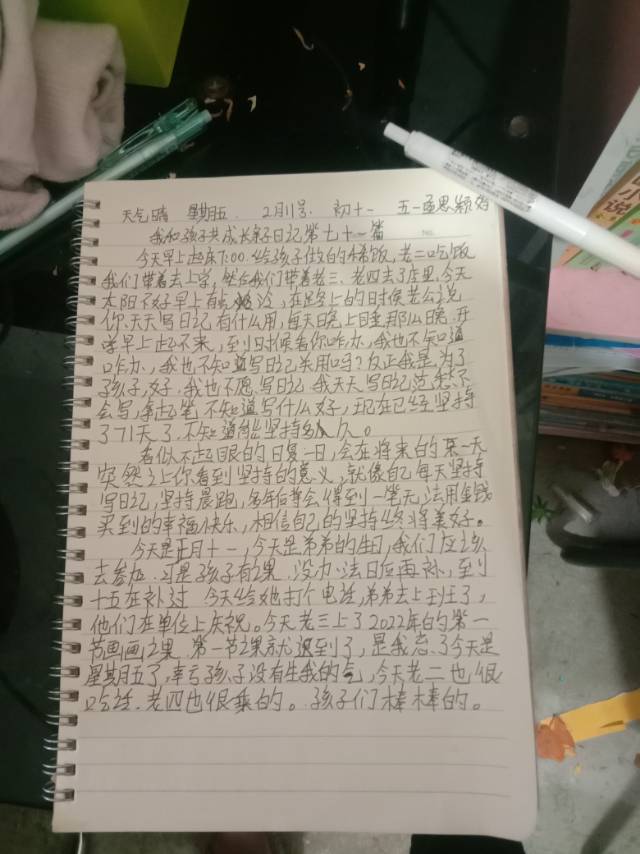 天气晴 星期五. 2月11号. 初十一 五一孟思颖妈
我和孩子共成长亲子日记第七十一篇
No.
今天早上起床7:00.给孩子做的稀饭,老二吃饭
我们带着去上学,然后我们带着老三、老四去了店里.今天
太阳不好早上有点冷,在路上的时候老公说
你天天写日记有什么用,每天晚上睡那么晚.开
学早上起不来,到时候看你咋办,我也不知道
咋办,我也不知道写日记关用吗?反正我是为了
孩子好.我也不愿写日记.我天天写日记总是不
会写,拿起笔不知道写什么好,现在已经坚持
了71天了.不知道能坚持多久。
看似不起眼的日复一日,会在将来的某一天
突然之上你看到坚持的意义,就像自己每天坚持
写日记,坚持晨跑,多年后等会得到一笔无法用金钱
买到的幸福快乐,相信自己的坚持终将美好。
今天是正月十一,今天是弟弟的生日,我们应该
去参加.可是孩子有课.没办法日后再补,到
十五在补过 今天给她打个电话,弟弟去上班了,
他们在单位上庆祝。今天老三上了2022年的第一
节画画课 第一节课就迟到了,是我忘了今天是
星期五了,幸亏孩子没有生我的气,今天老二也很
听话.老四也很乘的。孩子们棒棒的。
小说